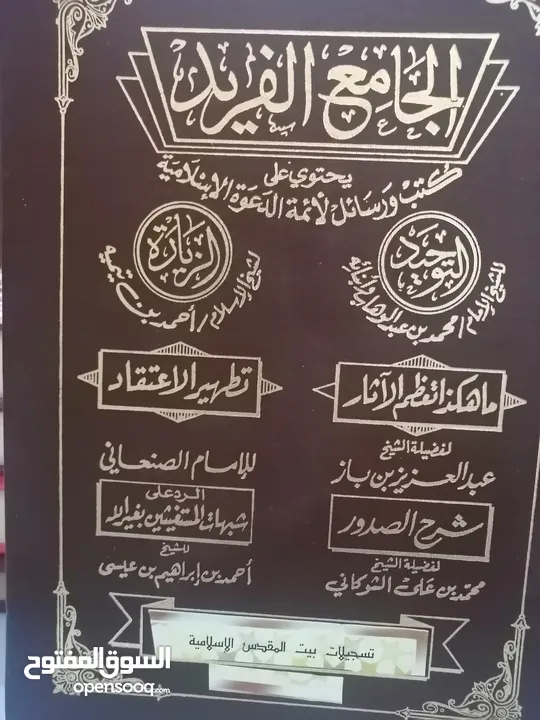 الجامع الفريد
يحتوي على
كتب ورسائل لأئمة الدعوة الإسلامية
التوحيد
للشيخ الإمام/محمد بن عبدالوهاب وأبنائه
الزيارة
لشيخ الإسلام/أحمد بن تيميه
ما هكذا تعظم الآثار
لفضيلة الشيخ
عبدالعزيز بن باز
تطهير الاعتقاد
للإمام الصنعاني
شرح الصدور
لفضيلة الشيخ
محمد بن على الشوكاني
الرد على
شبهات المستغيثين بغير الله
للشيخ
أحمد بن إبراهيم بن عيسى
تسجيلات بيت المقدس الإسلامية
السوق المفتوح
opensooq.com